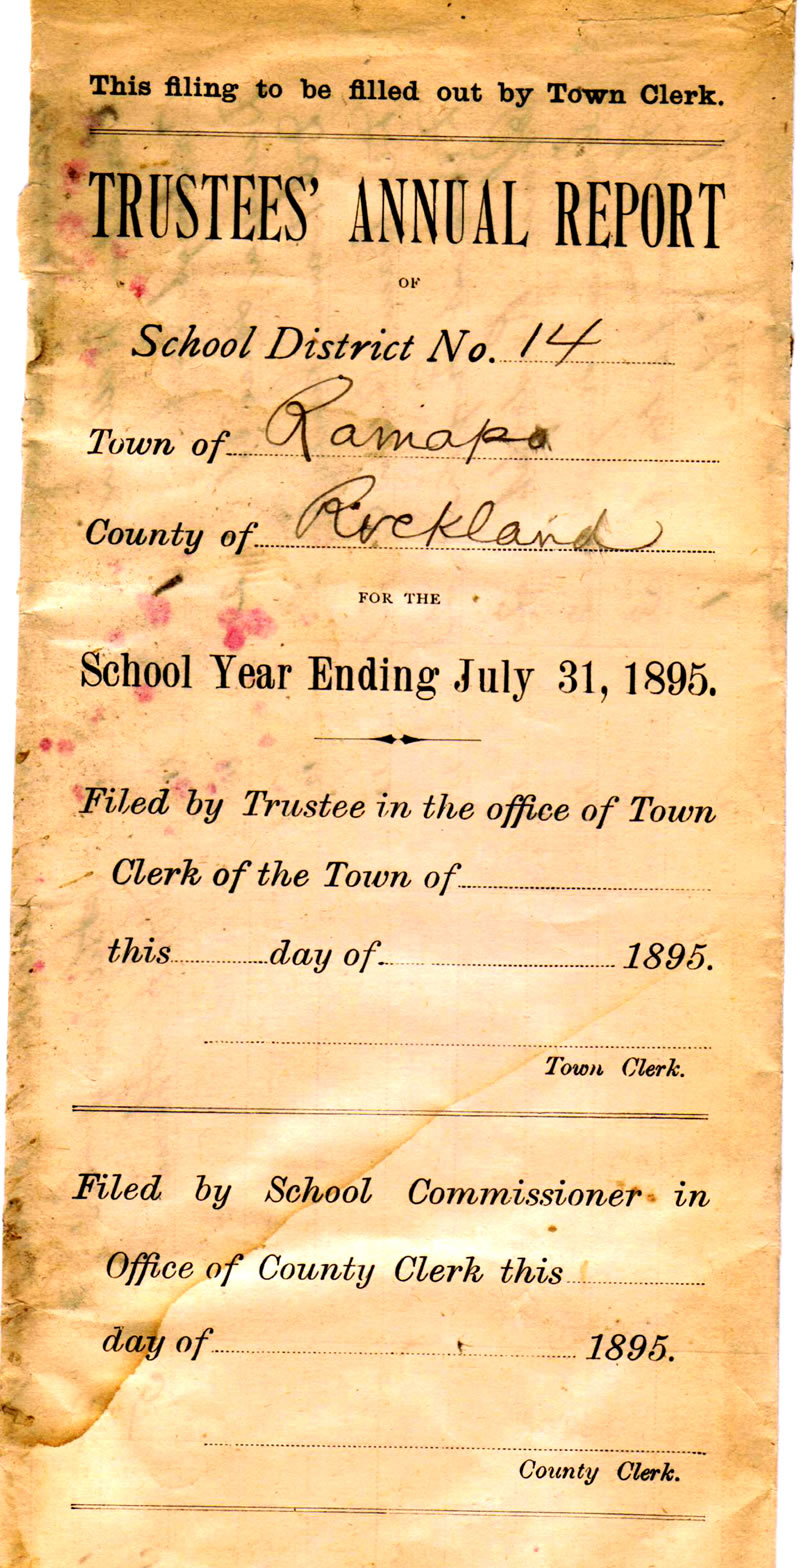 This filing to be filled out by Town Clerk.
TRUSTEES' ANNUAL REPORT
OF
School District No. 14
Town of Ramapo
County of Rockland
FOR THE
School Year Ending July 31, 1895.
Filed by Trustee in the office of Town
Clerk of the Town of
this day of 1895.
Town Clerk.
Filed by School Commissioner in
Office of County Clerk this
day of 1895.
County Clerk.